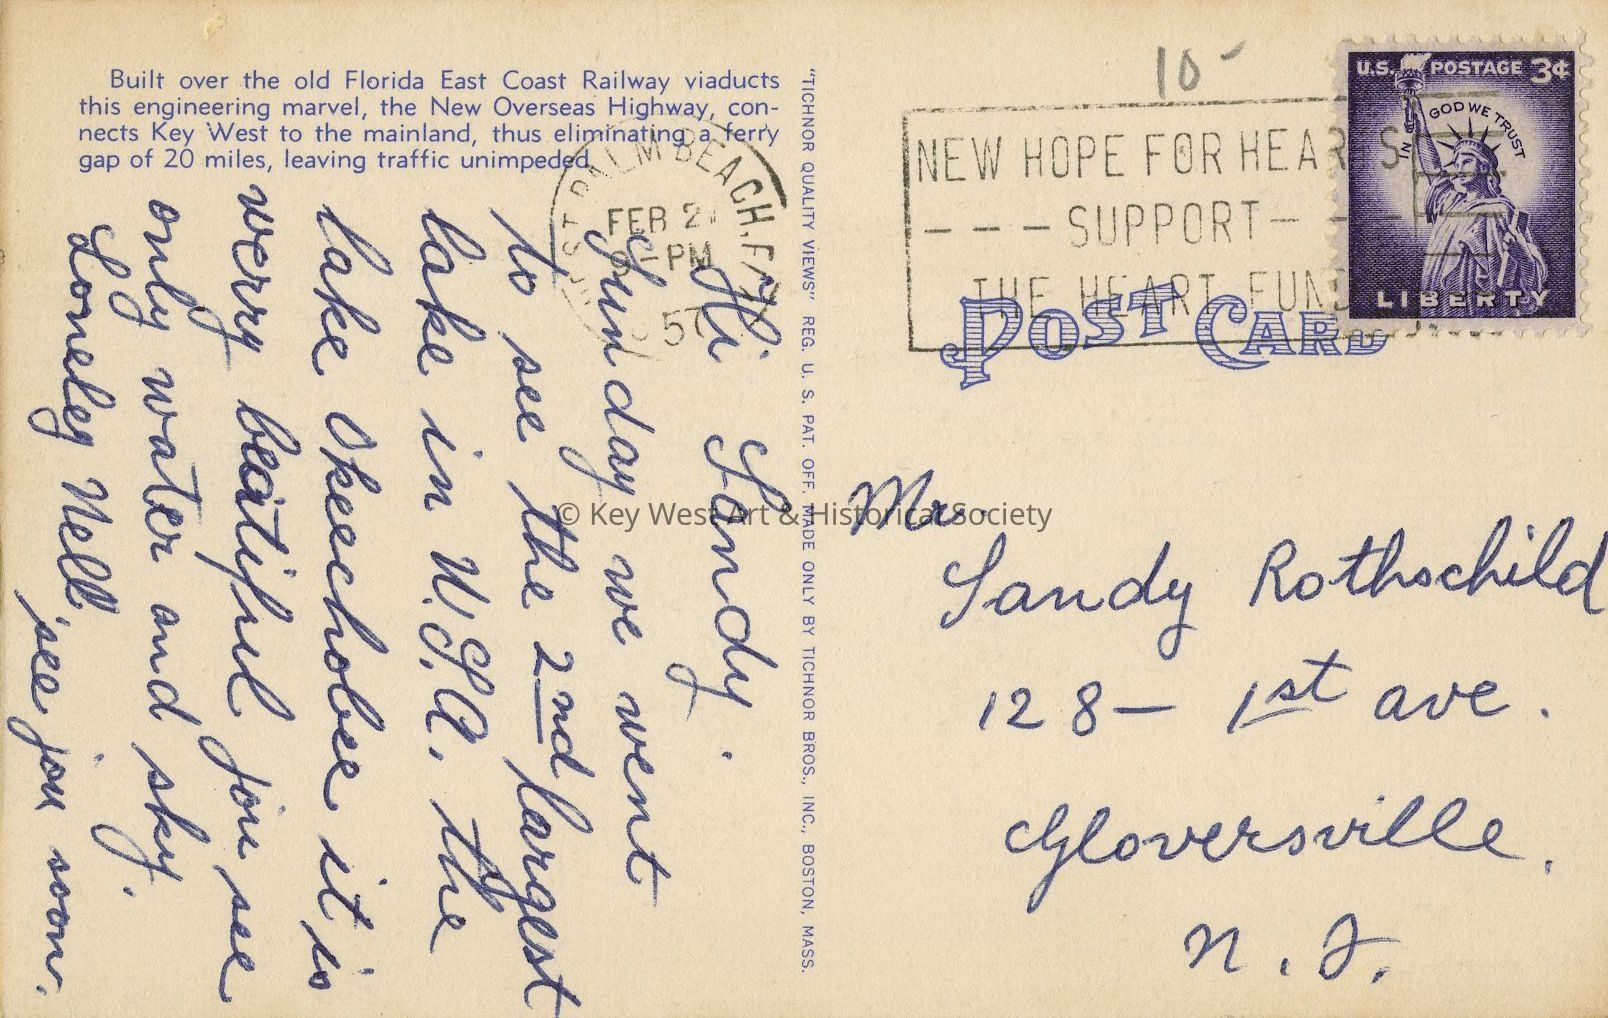 Built over the old Florida East Coast Railway viaducts
this engineering marvel, the New Overseas Highway, con-
nects Key West to the mainland, thus eliminating a ferry
gap of 20 miles, leaving traffic unimpeded.
Hi Sandy.
Sunday we went
to see the 2nd largest
lake in U.S.A. the
lake Okeechobee it is
verry beatiful you see
only water and sky.
Loneley Nell
see you soon.
"TICHNOR QUALITY VIEWS" REG. U. S. PAT. OFF. MADE ONLY BY TICHNOR BROS., INC., BOSTON, MASS.
PALM BEACH, FLA
FEB 2
PM
57
10-
NEW HOPE FOR HEARTS
SUPPORT
THE HEART FUND
U.S. POSTAGE 3¢
IN GOD WE TRUST
LIBERTY
POST CARD
Mr.
Sandy Rothschild
128 - 1st ave.
Gloversville.
N. J.
© Key West Art & Historical Society